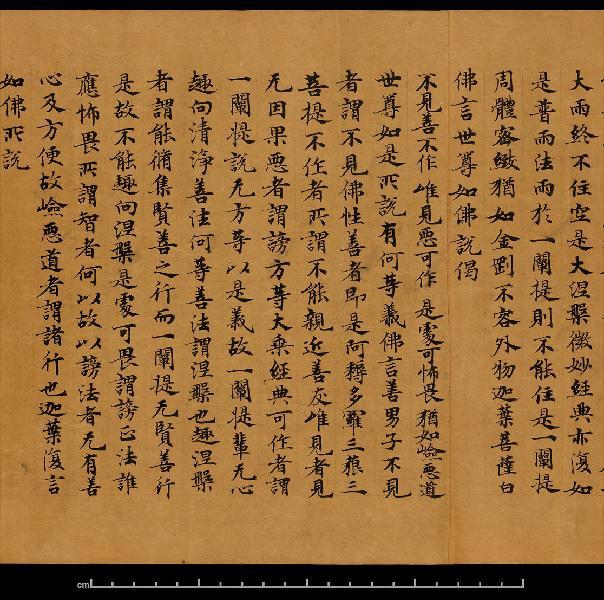 大雨終不住空是大涅槃微妙經典亦復如
是普雨法雨於一闡提則不能住是一闡提
周體密緻猶如金剛不容外物迦葉菩薩白
佛言世尊如佛說偈
不見善不作唯見惡可作是處可怖畏猶如嶮惡道
世尊如是所說有何等義佛言善男子不見
者謂不見佛性善者即是阿耨多羅三藐三
菩提不作者所謂不能親近善友唯見者見
无因果惡者謂謗方等大乘經典可作者謂
一闡提說无方等以是義故一闡提輩无心
趣向清淨善法何等善法謂涅槃也趣涅槃
者謂能脩集賢善之行而一闡提无賢善行
是故不能趣向涅槃是處可畏謂謗正法誰
應怖畏所謂智者何以故以謗法者无有善
心及方便故嶮惡道者謂諸行也迦葉復言
如佛所說
cm